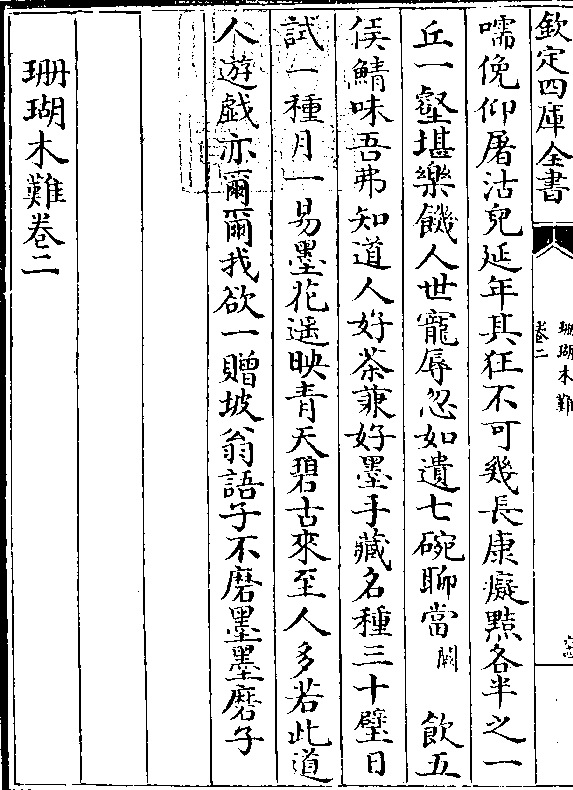 欽定四庫全書
珊瑚木難
卷二
嚅俛仰屠沽兒延年其狂不可幾長康癡黠各半之一
丘一壑堪樂饑人世寵辱忽如遺七碗聊當闕飲五
侯鯖味吾弗知道人好茶兼好墨手藏名種三十璧日
試一種月一易墨花遥映青天碧古來至人多若此道
人遊戲亦爾爾我欲一贈坡翁語子不磨墨墨磨子
珊瑚木難卷二